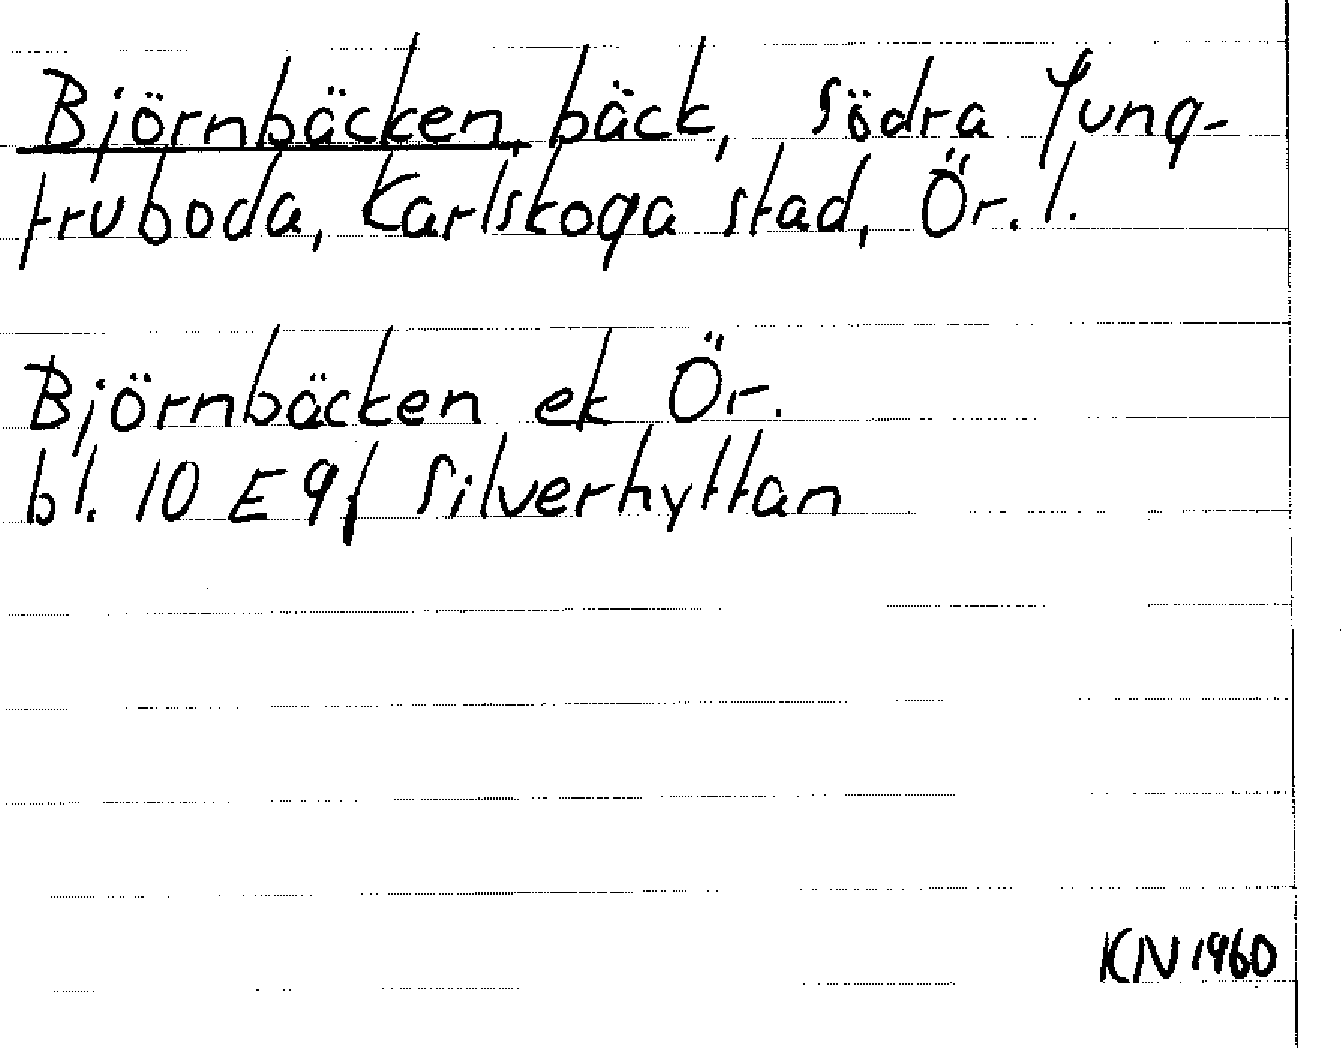 Björnbäcken, bäck, Södra Jung-
fruboda, Karlskoga stad, Ör. l.
Björnbäcken ek Ör.
bl. 10 E 9f Silverhyttan
KN 1960